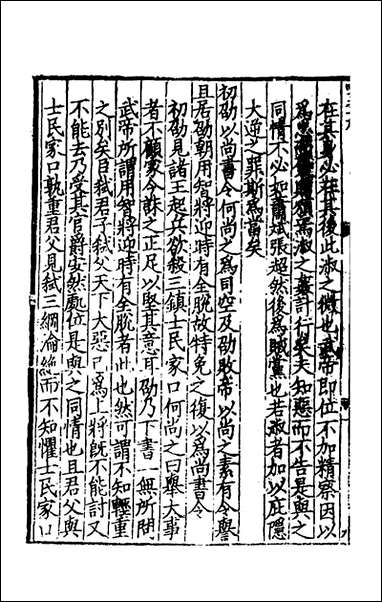 在其身必在其後此淑之微也武帝即位不加精察因以
爲淑之姦計行矣夫知惡而不告是與之
同情不必如蕭斌張超然後爲賊黨也若淑者加以庇隱
大逆之罪斯爲當矣
初劭以尚書令何尚之爲司空及劭敗帝以尚之素有令譽
且居劭朝用智將迎時有全脫故特免之復以爲尚書令
初劭見諸王起兵欲殺三鎮士民家口何尚之曰舉大事
者不顧家今誅之正足以堅其意耳劭乃下書一無所問
武帝所謂用智將迎時有全脫者此也然可謂不知輕重
之別矣臣弑君子弑父天下大惡已爲上將旣不能討又
不能去乃受其官爵安然處位是與之同情也且君父與
士民家口孰重君父見弑三綱淪絶而不知懼士民家口